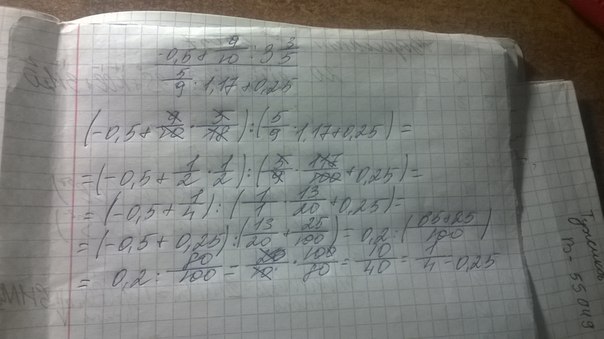 -0,5 + 9/10 : 3 3/5
5/9 · 1,17 + 0,25
(-0,5 + 9/10 · 5/18) : (5/9 · 1,17 + 0,25) =
= (-0,5 + 1/2 · 1/2) : (5/9 · 117/100 + 0,25) =
= (-0,5 + 1/4) : (1/1 · 13/20 + 0,25) =
= (-0,5 + 0,25) : (13/20 + 25/100) = 0,2 : (65+25/100)
= 0,2 : 80/100 = 20/10 · 100/80 = 10/40 = 1/4 = 0,25
55049